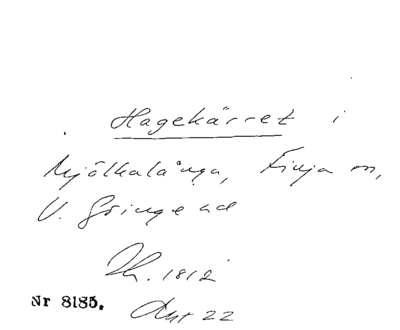 Hagekärret i
Mjölkalånga, Finja sn,
V. Göinge hd
Lh. 1812
Nr 8185. Akt 22